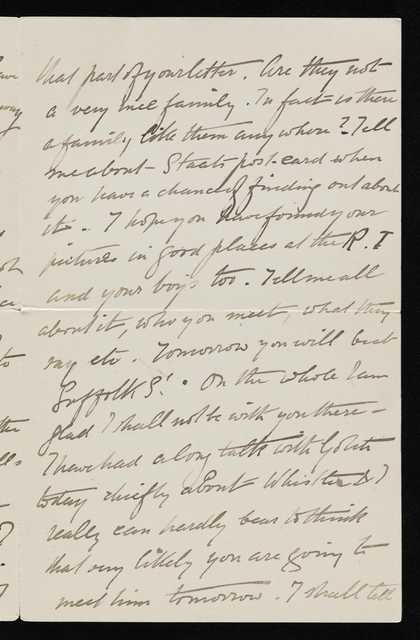 that part of your letter. Are they not
a very nice family. In fact is there
a family like them anywhere? Tell
me about Staats post-card when
you have a chance of finding out about
it. I hope you have found your
pictures in good places at the R.I
and your boys too. Tell me all
about it, who you meet, what they
say etc. Tomorrow you will be at
Suffolk St. On the whole I am
glad I shall not be with you there -
I have had a long talk with
today chiefly about Whistler & I
really can hardly bear to think
that very likely you are going to
meet him tomorrow. I shall tell